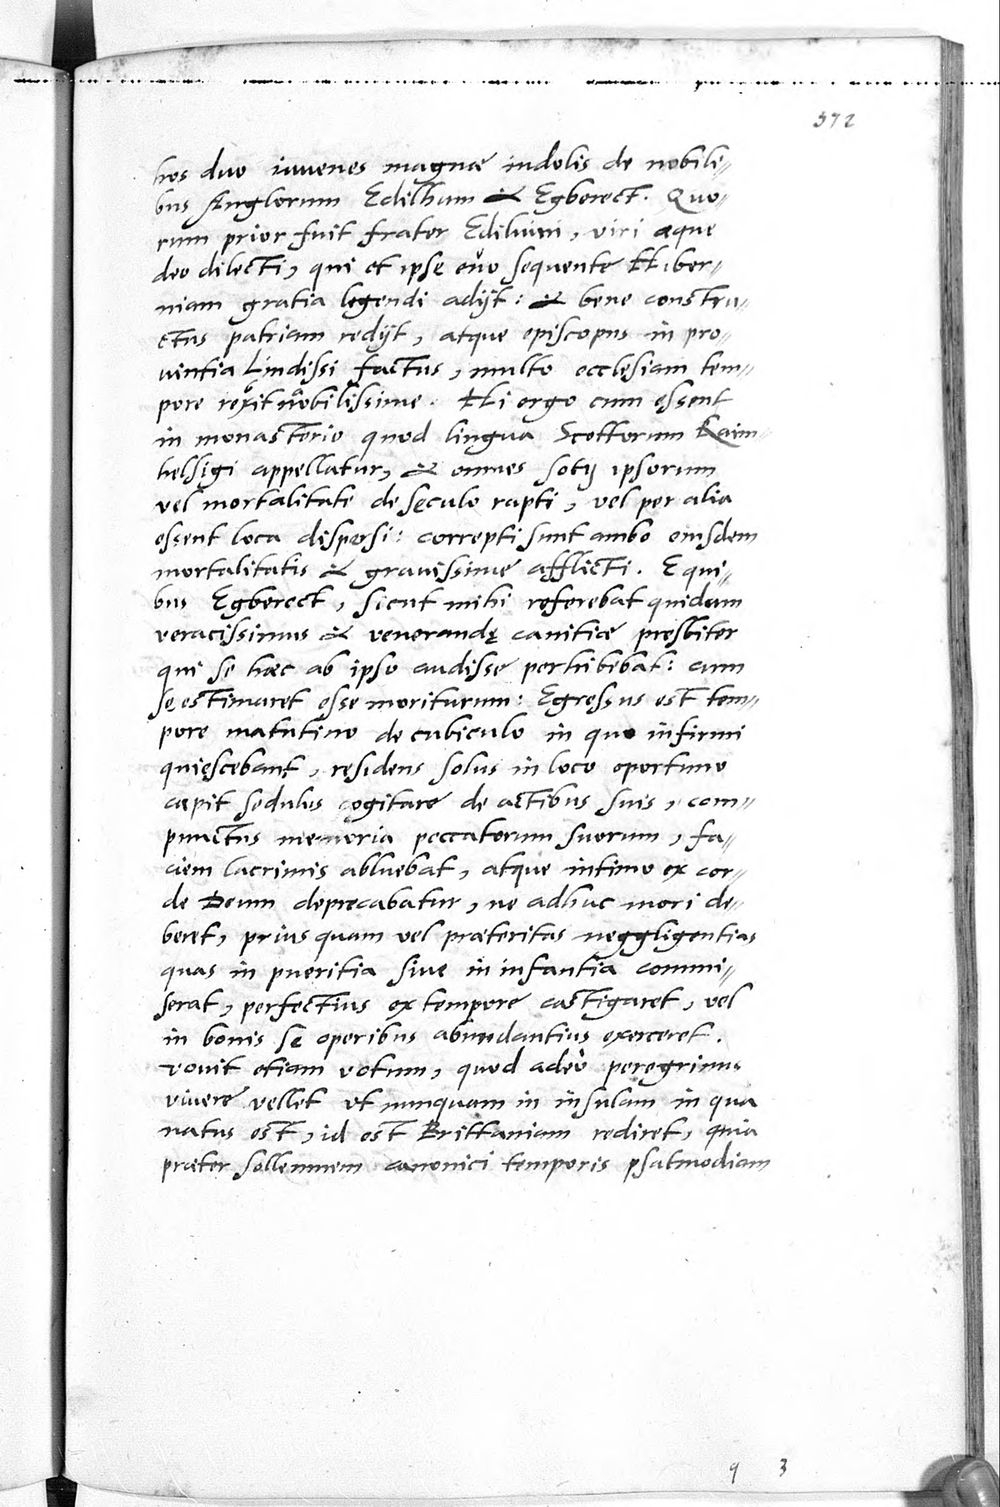 572
hos duo iuuenes magnæ indolis de nobili„
bus Anglorum Edilham & Egberect. Quo„
rum prior fuit frater Ediluini, viri æque
deo dilecti, qui et ipse ęuo sequente Hiber„
niam gratia legendi adijt: & bene constru„
ctus patriam redijt, atque episcopus in pro„
uintia Lindissi factus, multo ecclesiam tem„
pore rexit nobilissime. Hi ergo cum essent
in monasterio quod lingua Scottorum Raim„
helsigi appellatur, & omnes sotij ipsorum
vel mortalitate de seculo rapti, vel per alia
essent loca dispersi: correpti sunt ambo eiusdem
mortalitatis & grauissime afflicti. E qui„
bus Egberect, sicut mihi referebat quidam
veracissimus & venerandę canitiæ presbiter
qui se hæc ab ipso audisse perhibebat: cum
se estimaret esse moriturum: Egressus est tem„
pore matutino de cubiculo in quo infirmi
quiescebant, residens solus in loco oportuno
cæpit sedulus cogitare de actibus suis, com„
punctus memoria peccatorum suorum, fa„
ciem lacrimis abluebat, atque intimo ex cor„
de Deum deprecabatur, ne adhuc mori de„
beret, prius quam vel præteritas neggligentias
quas in pueritia siue in infantia commi„
serat, perfectius ex tempore castigaret, vel
in bonis se operibus abundantius exerceret.
vouit etiam votum, quod adeò peregrinus
viuere vellet vt nunquam in insulam in qua
natus est, id est Brittaniam rediret, quia
præter sollemnem canonici temporis psalmodiam
q 3